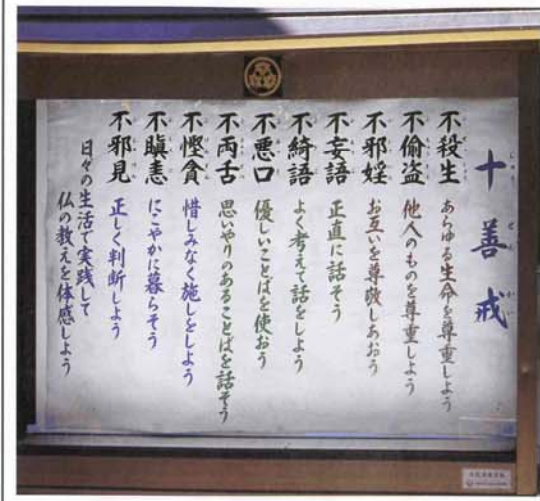 十善戒
不殺生 あらゆる生命を尊重しよう
不偸盗 他人のものを尊重しよう
不邪婬 お互いを尊敬しあおう
不妄語 正直に話そう
不綺語 よく考えて話をしよう
不悪口 優しいことばを使おう
不両舌 思いやりのあることばを話そう
不慳貪 惜しみなく施しをしよう
不瞋恚 にこやかに暮らそう
不邪見 正しく判断しよう
日々の生活で実践して
仏の教えを体感しよう